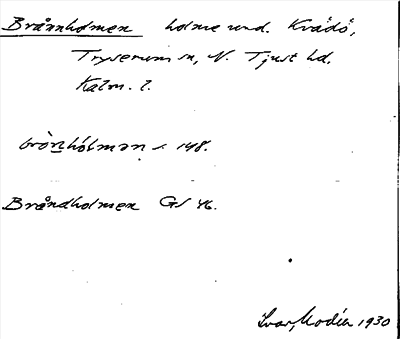 Brånnholmen holme und. Kvädö,
Tryserum sn, N. Tjust hd.
Kalm. l.
brònhólman 148.
Bråndholmen GS 46.
Ivar Modéer 1930